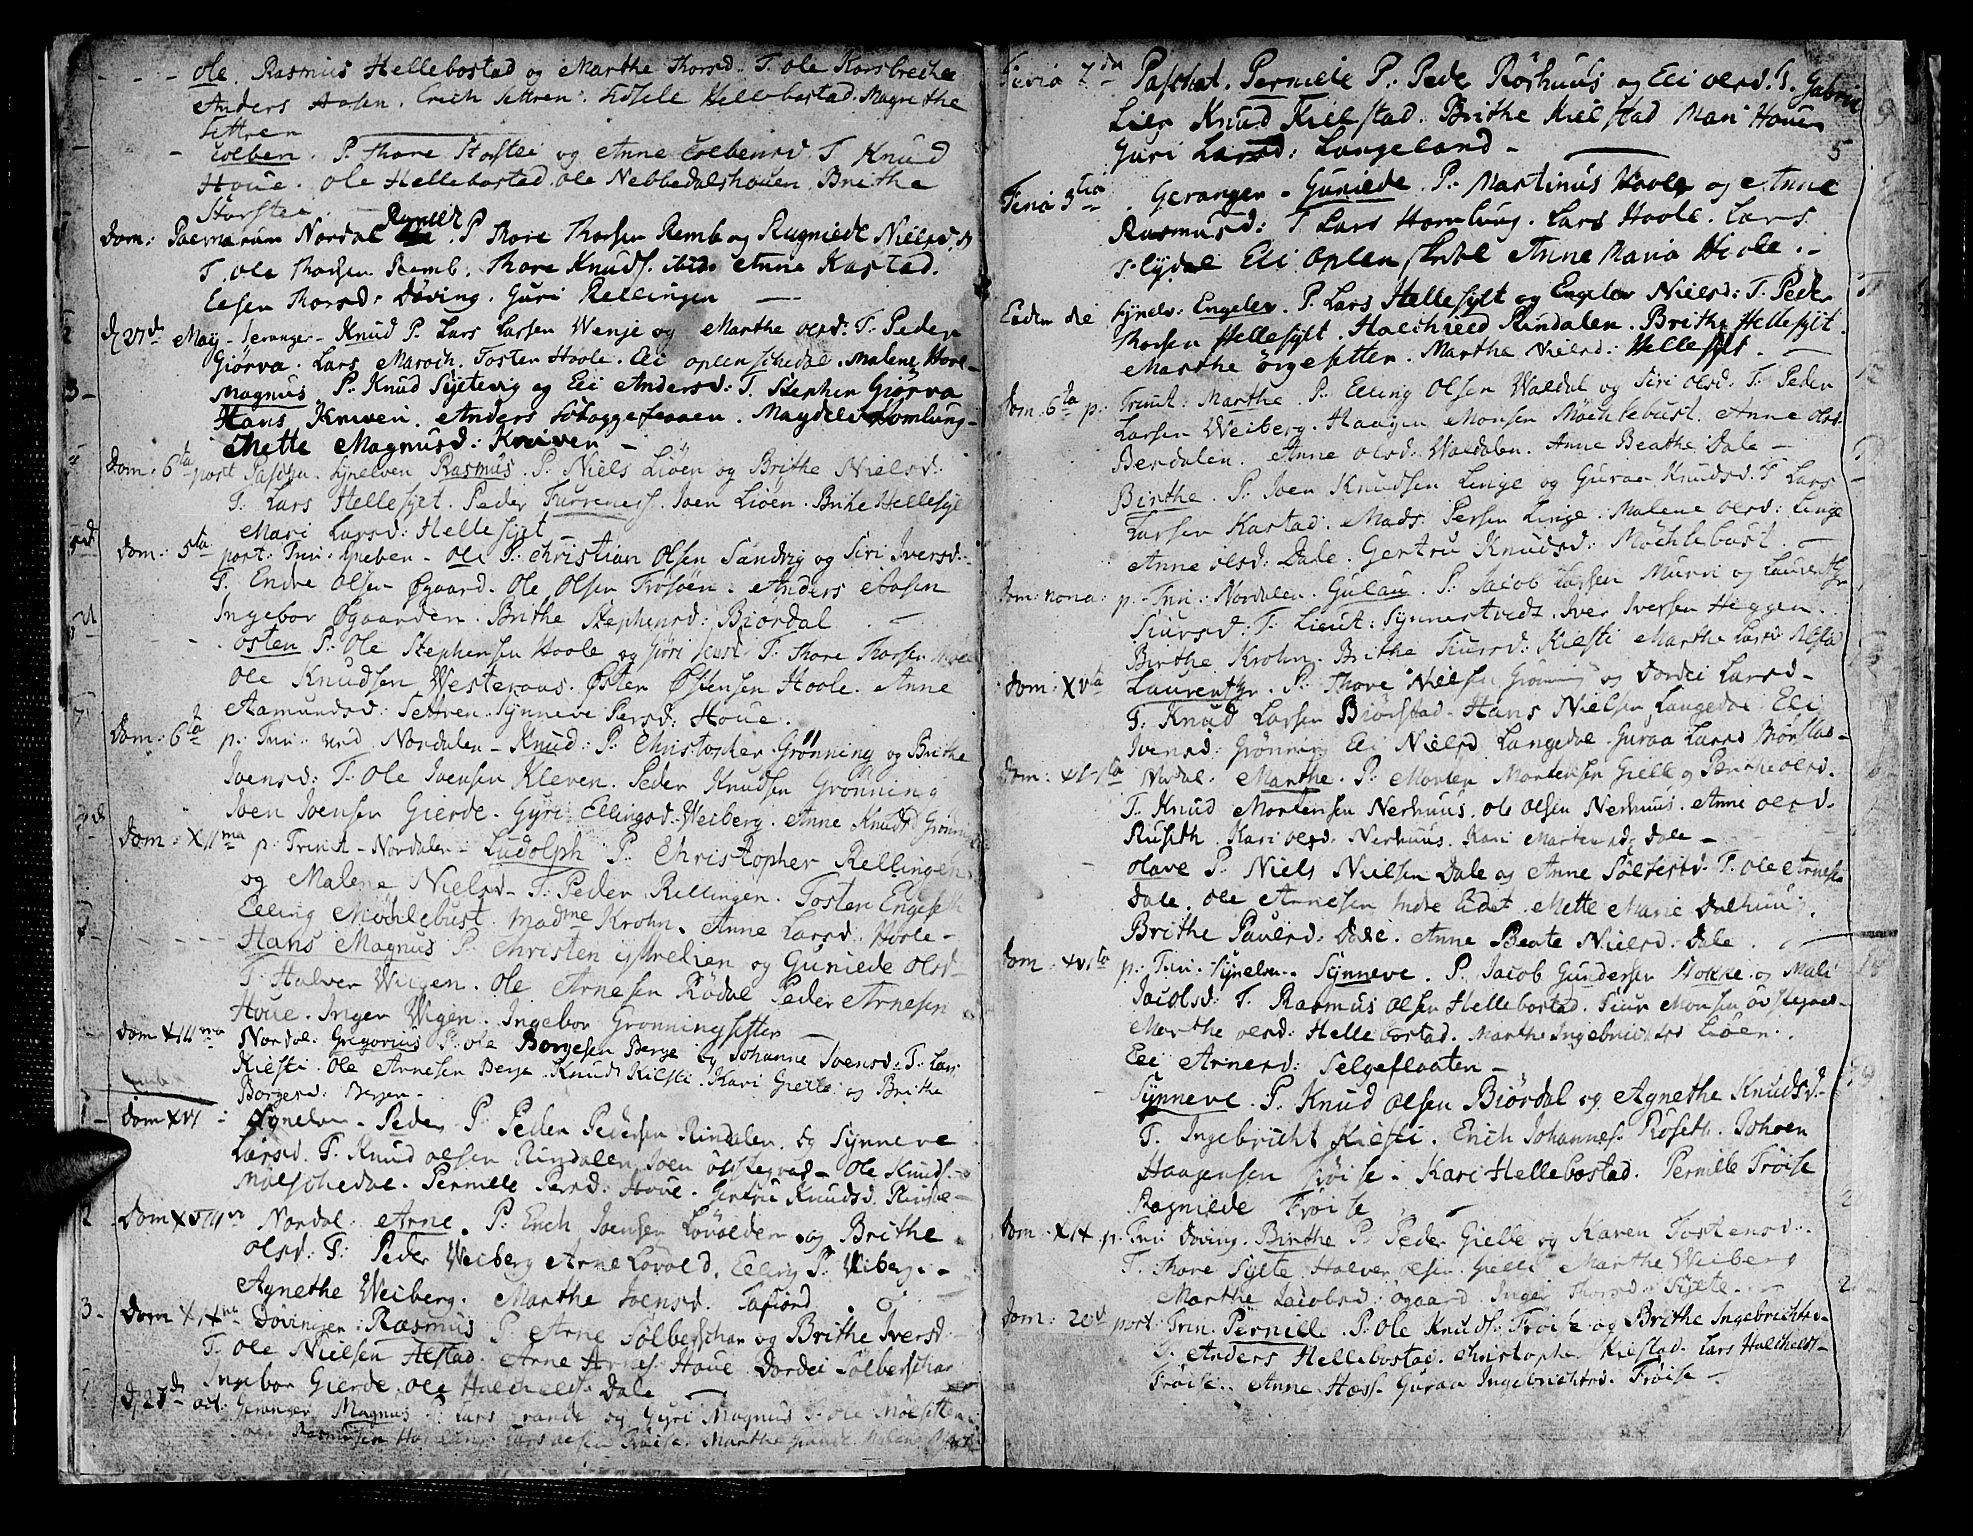 Ole. Rasmus Hellebostad og Marthe Thorsd: T. Ole Korsbrechee
Anders Aasen. Erich Settren. Sidsele Hellebostad. Magrethe
Settren
Colben. P. Thore Storstei og Anne Colbensd. T. Knud
Houe. Ole Hellebostad. Ole Nebbedalshouen. Brithe
Storstee.
Dom: Palmarum Nordal Rangel. P. Thore Thorsen Remb og Rugniede Nielsd:
T. Ole Thorsen Remb. Thore Knuds. ibid. Anne Kastad.
Elsen Thorsd: Døving. Guri Rellingen
D. 27de May - Geranger - Knud P. Lars Larsen Wenje og Marthe Olsd: T. Peder
Giørva. Lars Maroch. Tosten Hoole. Eli Oplenschedal. Malene Hole
Magnus. P. Knud Syltevig og Eli Andersd: T. Stephen Giørva
Hans Kniven. Anders Schaggeflaaen. Magdele Homlung
Mette Magnusd: Kniven
Dom: 6ta post Paschn. Synelven Rasmus. P. Niels Liøen og Brithe Nielsd:
T. Lars Hellesylt. Peder Furreness. Joen Liøen. Brite Hellesylt
Mari Larsd: Hellesylt
Dom: 5ta post: Trin: Spieben - Ole P. Christian Olsen Sandvig og Siri Iversd:
T. Endre Olsen Øgaard. Ole Olsen Frøsøen. Anders Aasen
Ingebor Øgaarden. Brithe Stephensd: Biørdal
Osten P. Ole Stephensen Hoole og Giøri Jensd: T. Thore Thorsen
Ole Knudsen Westeraas. Østen Østensen Hoole. Anne
Aamundsd: Settren. Synneve Persd: Houe.
Dom: 6ta p: Trin: ved Nordalen - Knud: P. Christopher Grønning og Brithe
Joensd: T. Ole Joensen Kleven. Peder Knudsen Grønning
Joen Joensen Gierde. Gyri Ellingsd: Weiberg. Anne Knudsd Grønning
Dom: XIIma p: Trinit - Nordalen - Ludolph P. Christopher Rellingen
og Malene Nielsd - T. Peder Rellingen. Tosten Engeseth
Elling Möchlebust. Madme Krohn. Anne Larsd: Hoole -
Hans Magnus P. Christen Ystrelien og Guniede Olsd -
T. Halvor Wigen. Ole Arnesen Rødal Peder Arnesen
Houe. Inger Wigen. Ingebor Grønningsetter
Dom XIIIma Nordal: Gregorius P. Ole Borgesen Berge og Johanne Joensd: T. Lars
Kilsti. Ole Arnesen Berge. Knud Kilsti. Kari Gielle og Brithe
Borgesd: Bergen -
Dom XVI : Synelven - Peder P. Peder Pedersen Rindalen og Synneve
Larsd. T. Knud Olsen Rindalen Joen Ødstegard - Ole Knuds.
Molschedal. Pernille Persd: Houe. Gertru Knudsd. Rindal
Dom XVIIIva Nordal: Arne. P. Erich Joensen Løvolden og Brithe
Olsd: T. Peder Weiberg Arne Løvold. Elling P. Weiberg.
Agnethe Weiberg. Marthe Joensd. Tafiord
Dom XIXna Døvingen: Rasmus P. Arne Sølberschar og Brithe Iversd:
T. Ole Nielsen Alstad. Arne Arnes. Houe Dordei Sølberschar
Ingebor Gierde. Ole Halchelds. Dale
D. 27de Oct: Geranger. Magnus P. Lars Grande og Gyri Magnus T. Ole Mølsetten
Joen Rasmusen Homlung Lars Olsen Frøise. Marthe Grande. Malene
Feria 2da Paschat. Pernille P. Peder Röshuus og Eli Olsd. T. Gabriel
Lier Knud Kielstad. Brithe Kielstad Mari Houes
Guri Larsd: Langeland -
5
Feria 3tia Geranger - Guniede. P. Martinus Hoole og Anne
Rasmusd: T. Lars Homlung. Lars Hoole. Lars
Flydal Eli Oplenskedal Anne Maria Hole.
Eadem die Synelv: Engelev. P. Lars Hellesylt og Engelev Nielsd: T. Peder
Thorsen Hellesylt. Halchield Rindalen. Brithe Hellesylt.
Marthe Ørgesetter. Marthe Nielsd: Hellesylt. -
Dom: 6ta p: Trinit: Marthe. P. Elling Olsen Waldal og Siri Olsd: T. Peder
Larsen Weiberg. Haagen Monsen Möchlebust. Anne Olsd:
Berdalen. Anne Olsd: Waldalen. Anne Beathe Dale -
Birthe. P. Joen Knudsen Linge og Guraa Knudsd. T. Lars
Larsen Kastad. Mads Persen Linge. Malene Olsd: Linge
Anne Olsd: Dale. Gertru Knudsd: Möchlebust -
Dom: nona: p: Trin: Nordalen. Gulau. P. Jacob Larsen Murri og Laurentze
Siursd: T. Lieut: Synnestvedt. Iver Iversen Heggen.
Birthe Krohn. Brithe Siursd: Kilsti Marthe Larsd
Dom: XVta Laurentze. P. Thore Nielsen Grønning og Dordei Larsd -
T. Knud Larsen Biørstad - Hans Nielsen Langedal. Eli
Joensd: Grønning Eli Nielsd Langedal Guraa Larsd Biørstad -
Dom: XV-ta Nordal. Marthe. P. Morten Mortensen Gielle og Brithe Olsd.
T. Knud Mortensen Nerhuus. Ole Olsen Nerhuus. Anne Olsd.
Ruseth. Kari Olsd: Nerhuus. Kari Martensd; Dale -
Olave P. Niels Nielsen Dale og Anne Sølfestsd. T. Ole Arnesen
Dale. Ole Arnesen Indre Eidet. Mette Marie Dalhuus.
Brithe Paulsd: Dale. Anne Beate Nielsd: Dale.
Dom: XVIta p: Trin. Synelven. Synneve. P. Jacob Gundersen Stokke og Mali
Jacobsd: T. Rasmus Olsen Hellebostad. Siur Monsen Ødstegard -
Marthe Olsd: Hellebostad. Marthe Ingebrichtsd Liøen.
Eli Arnesd: Selgeflaaten -
Synneve. P. Knud Olsen Biørdal og Agnethe Knudsd -
T. Ingebricht Kilsti. Erich Johannes. Røseth. Johsen
Haagensen Frøise. Kari Hellebostad. Pernille Frøise
Ragniede Frøise -
Dom: XIX p. Trin Døving. Birthe P. Peder Gielle og Karen Tostensd:
T. Thore Sylte Halver Olsen Gielle Marthe Weiberg
Marthe Jacobsd: Øgaard Inger Thorsd: Sylte -
Dom: 20d post: Trin. Pernille. P. Ole Knuds: Frøise og Brithe Ingebrichtsd.
T. Anders Hellebostad. Christopher Kielstad. Lars Halchelds -
Frøise. Anne Hass. Guraa Ingebrichtsd. Frøise -